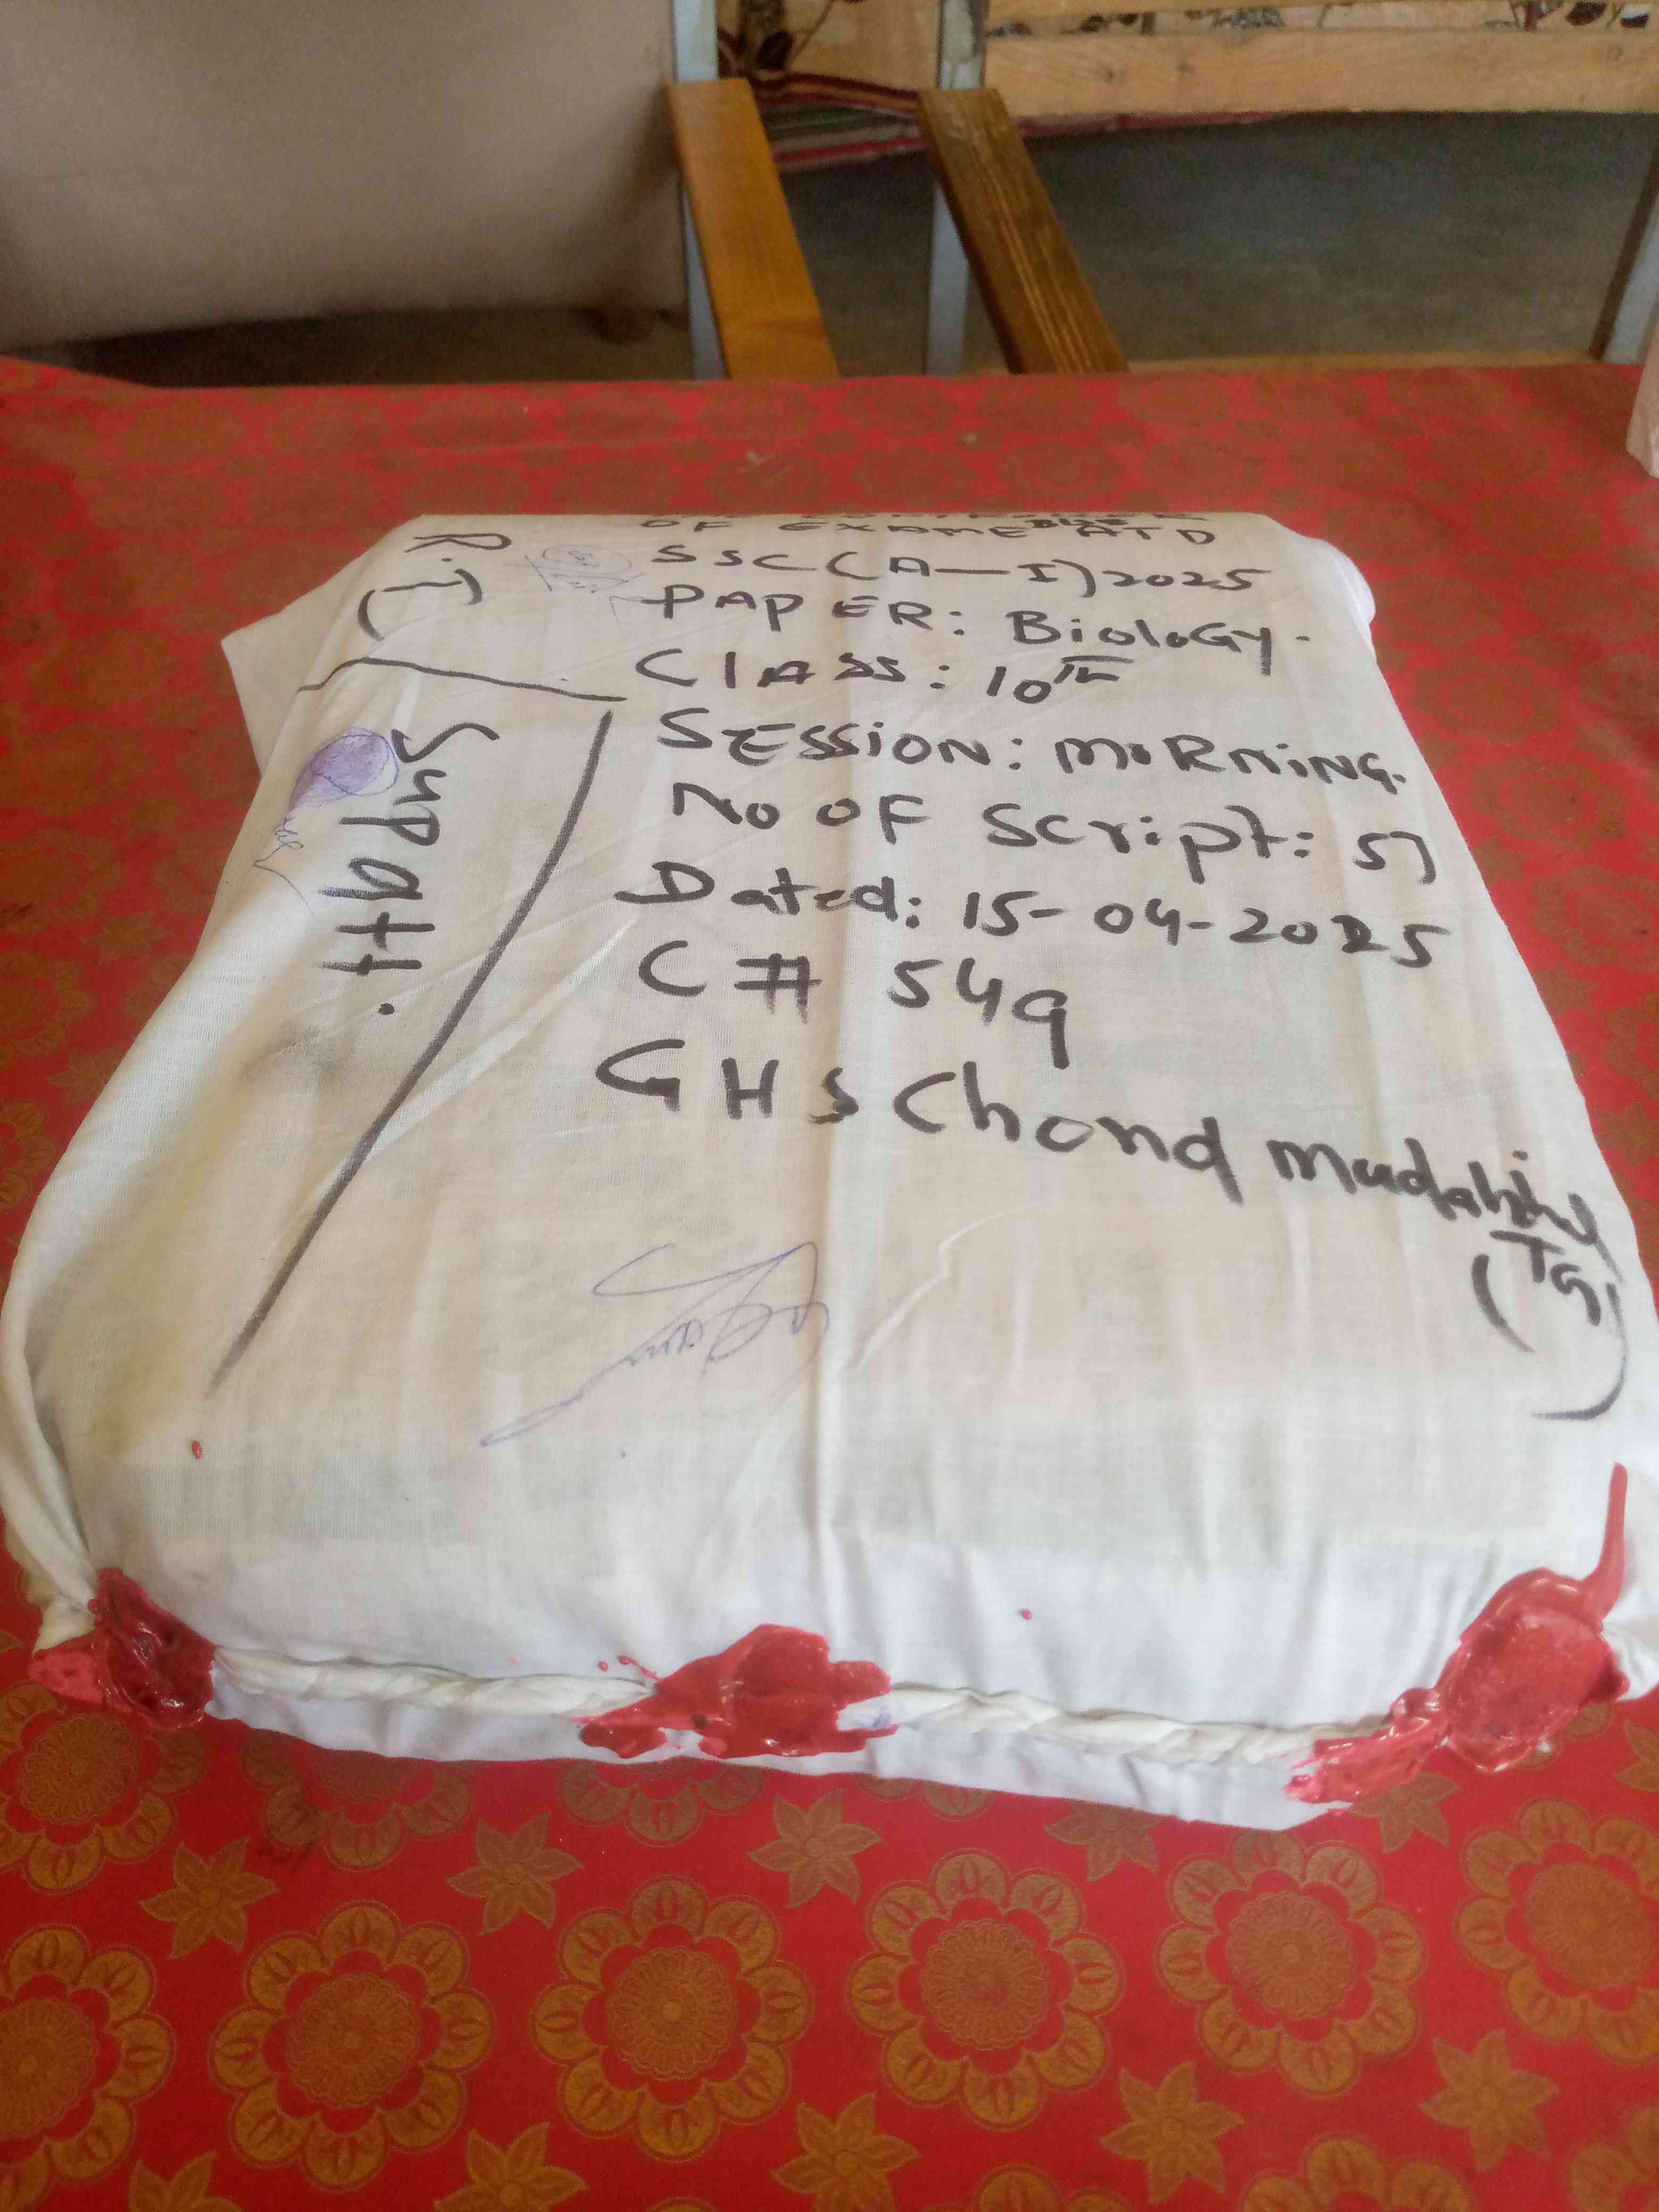 OF EXAME BISE ATD
SSC (A-I) 2025
PAPER: BioloGy.
ClASS: 10th
SESSiON: MoRNiNG.
No OF Script: 57
Dated: 15-04-2025
C # 549
GHS Chond
(TG)
R.(I)
SuPdtt.